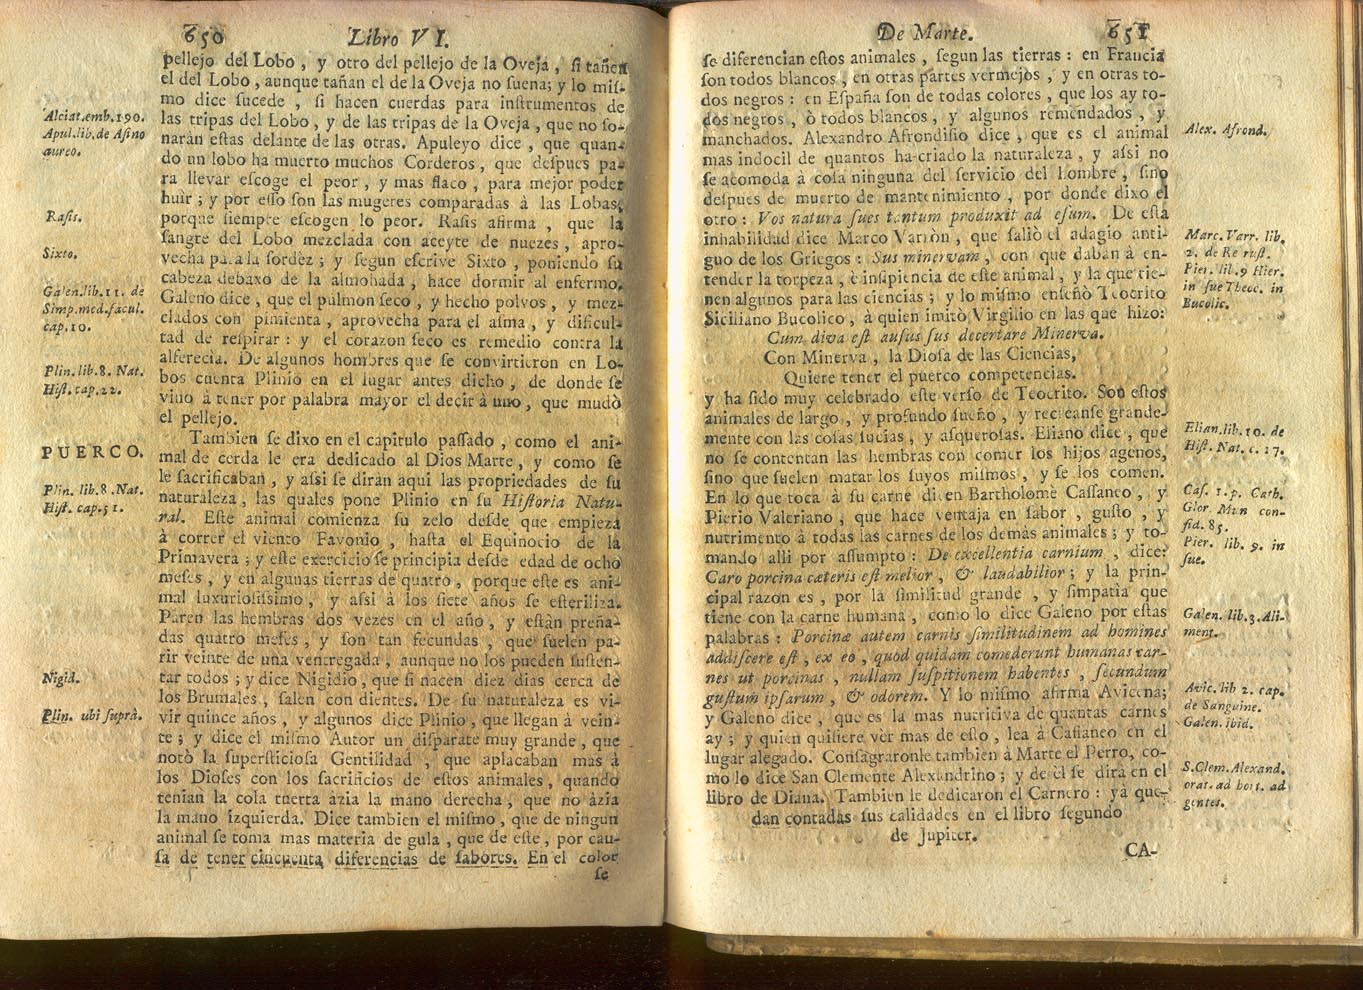 650
Libro VI.
pellejo del Lobo, y otro del pellejo de la Oveja, si tañen
el del Lobo, aunque tañan el de la Oveja no suena; y lo mis-
mo dice sucede, si hacen cuerdas para instrumentos de
las tripas del Lobo, y de las tripas de la Oveja, que no so-
narán estas delante de las otras. Apuleyo dice, que quan-
do un lobo ha muerto muchos Corderos, que despues pa-
ra llevar escoge el peor, y mas flaco, para mejor poder
huir; y por esso son las mugeres comparadas à las Lobas,
porque siempre escogen lo peor. Rasis afirma, que la
sangre del Lobo mezclada con aceyte de nuezes, apro-
vecha para la sordèz; y segun escrive Sixto, poniendo su
cabeza debaxo de la almohada, hace dormir al enfermo.
Galeno dice, que el pulmon seco, y hecho polvos, y mez-
clados con pimienta, aprovecha para el asma, y dificul-
tad de respirar: y el corazon seco es remedio contra la
alferecia. De algunos hombres que se convirtieron en Lo-
bos cuenta Plinio en el lugar antes dicho, de donde se
vino à tener por palabra mayor el decir à uno, que mudò
el pellejo.
Tambien se dixo en el capitulo passado, como el ani-
mal de cerda le era dedicado al Dios Marte, y como se
le sacrificaban, y assi se dirán aqui las propriedades de su
naturaleza, las quales pone Plinio en su Historia Natu-
ral. Este animal comienza su zelo desde que empieza
à correr el viento Favonio, hasta el Equinocio de la
Primavera; y este exercicio se principia desde edad de ocho
meses, y en algunas tierras de quatro, porque este es ani-
mal luxuriosissimo, y assi à los siete años se esteriliza.
Paren las hembras dos vezes en el año, y están preña-
das quatro meses, y son tan fecundas, que suelen pa-
rir veinte de una ventregada, aunque no los pueden susten-
tar todos; y dice Nigidio, que si nacen diez dias cerca de
los Brumales, salen con dientes. De su naturaleza es vi-
vir quince años, y algunos dice Plinio, que llegan à vein-
te; y dice el mismo Autor un disparate muy grande, que
notò la supersticiosa Gentilidad, que aplacaban mas à
los Dioses con los sacrificios de estos animales, quando
tenian la cola tuerta àzia la mano derecha, que no àzia
la mano izquierda. Dice tambien el mismo, que de ningun
animal se toma mas materia de gula, que de este, por cau-
sa de tener cincuenta diferencias de sabores. En el color
se
Alciat.emb.190.
Apul.lib.de Asino
aureo.
Rasis.
Sixto.
Galen.lib.11. de
Simp.med.facul.
cap.10.
Plin.lib.8. Nat.
Hist.cap.22.
PUERCO.
Plin. lib.8. Nat.
Hist. cap.51.
Nigid.
Plin. ubi suprà.
De Marte.
651
se diferencian estos animales, segun las tierras: en Francia
son todos blancos, en otras partes vermejos, y en otras to-
dos negros: en España son de todas colores, que los ay to-
dos negros, ò todos blancos, y algunos remendados, y
manchados. Alexandro Afrondisio dice, que es el animal
mas indocil de quantos ha criado la naturaleza, y assi no
se acomoda à cosa ninguna del servicio del hombre, sino
despues de muerto de mantenimiento, por donde dixo el
otro: Vos natura sues tantum produxit ad esum. De esta
inhabilidad dice Marco Varròn, que saliò el adagio anti-
guo de los Griegos: Sus minervam, con que daban à en-
tender la torpeza, è insipiencia de este animal, y la que tie-
nen algunos para las ciencias; y lo mismo enseñò Teocrito
Siciliano Bucolico, à quien imitò Virgilio en las que hizo:
Cum diva est ausus sus decertare Minerva.
Con Minerva, la Diosa de las Ciencias,
Quiere tener el puerco competencias.
y ha sido muy celebrado este verso de Teocrito. Son estos
animales de largo, y profundo sueño, y recreanse grande-
mente con las cosas sucias, y asquerosas. Eliano dice, que
no se contentan las hembras con comer los hijos agenos,
sino que suelen matar los suyos mismos, y se los comen.
En lo que toca à su carne dicen Bartholomè Cassaneo, y
Pierio Valeriano, que hace ventaja en sabor, gusto, y
nutrimento à todas las carnes de los demás animales; y to-
mando alli por assumpto: De excellentia carnium, dice:
Caro porcina cæteris est melior, & laudabilior; y la prin-
cipal razon es, por la similitud grande, y simpatia que
tiene con la carne humana, como lo dice Galeno por estas
palabras: Porcinæ autem carnis similitudinem ad homines
addiscere est, ex eo, quod quidam comederunt humanas car-
nes ut porcinas, nullam suspitionem habentes, secundum
gustum ipsarum, & odorem. Y lo mismo afirma Avicena;
y Galeno dice, que es la mas nutritiva de quantas carnes
ay; y quien quisiere ver mas de esto, lea à Cassaneo en el
lugar alegado. Consagraronle tambien à Marte el Perro, co-
mo lo dice San Clemente Alexandrino; y de èl se dirà en el
libro de Diana. Tambien le dedicaron el Carnero: yà que-
dan contadas sus calidades en el libro segundo
de Jupiter.
CA-
Alex. Afrond.
Marc. Varr. lib.
2. de Re rust.
Pier. lib.9 Hier.
in sue Theoc. in
Bucolic.
Elian.lib.10. de
Hist. Nat. c. 17.
Cas. 1.p. Cath.
Glor. Mun con-
sid. 85.
Pier. lib. 9. in
sue.
Galen. lib.3. Ali-
ment.
Avic.lib 2. cap.
de Sanguine.
Galen. ibid.
S.Clem.Alexand.
orat. ad hort. ad
gentes.